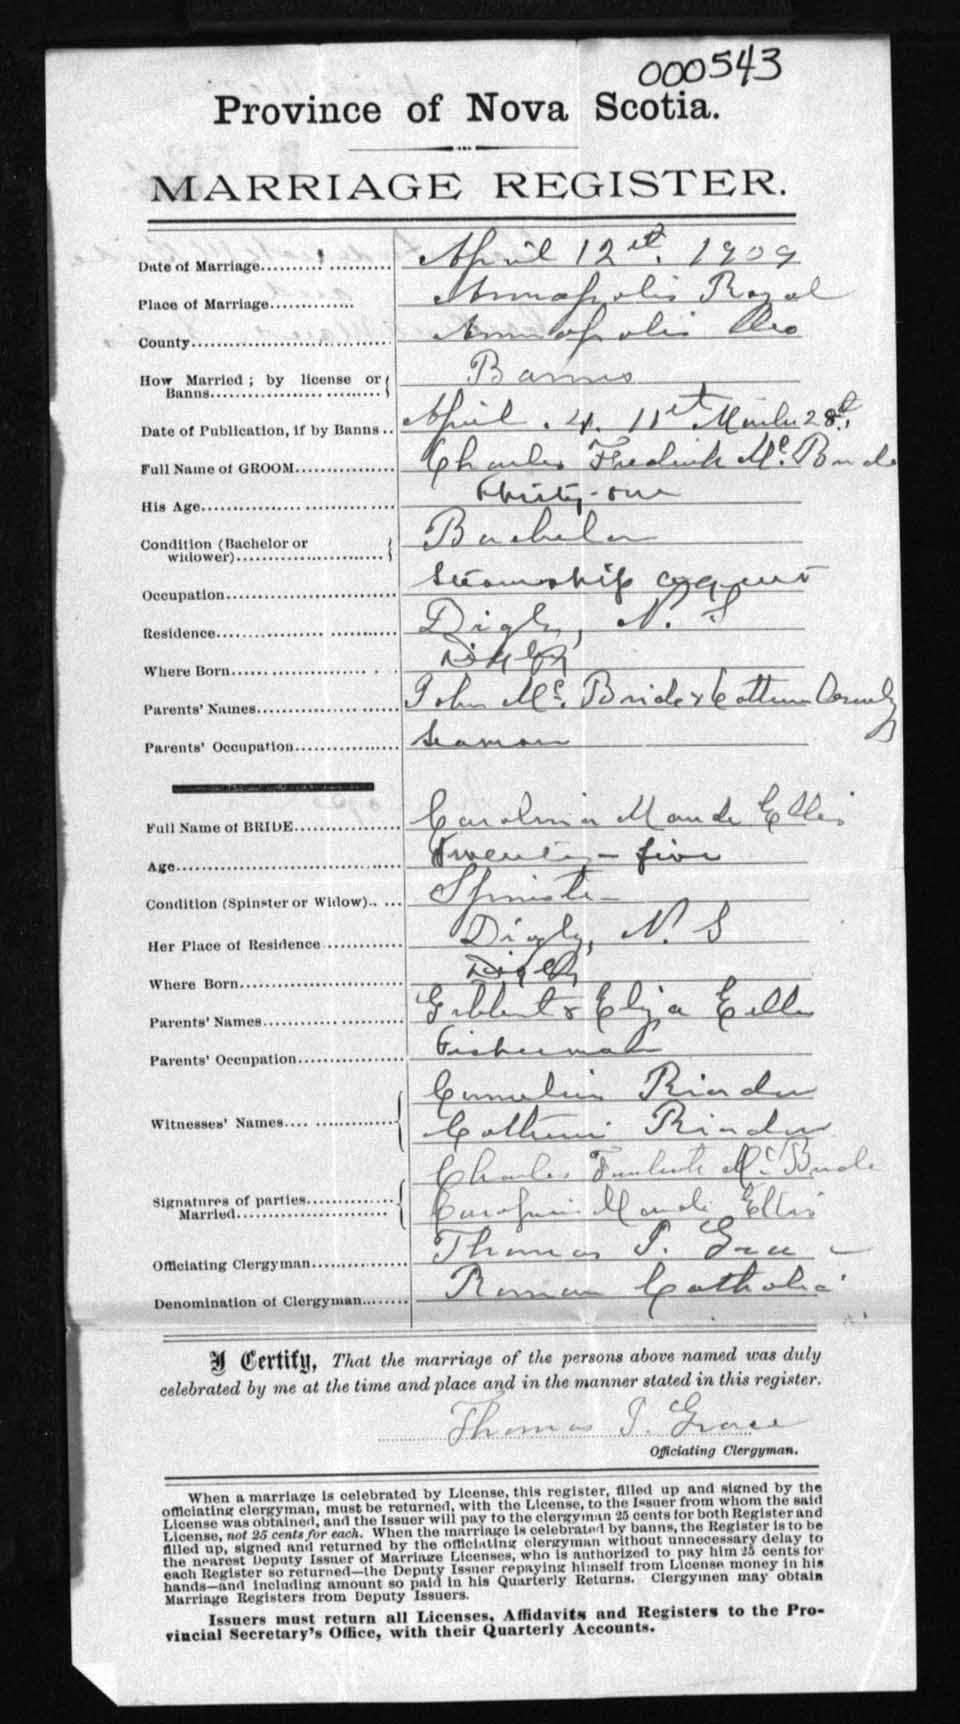 000543
Province of Nova Scotia.
MARRIAGE REGISTER.
Date of Marriage.......... April 12st. 1909
Place of Marriage.............. Annapolis Royal
County.............................. Annapolis Co
How Married ; by license or
Banns.............................. Banns
Date of Publication, if by Banns .. April . 4. 11st March 28th.
Full Name of GROOM............... Charles Frederick Mc. Bride
His Age.............................. thirty-one
Condition (Bachelor or
widower).............................. Bachelor
Occupation.............................. Steamship agent
Residence.............................. Digby, N. S
Where Born.............................. Digby
Parents' Names.............................. John Mc. Bride &
Parents' Occupation............... Seaman
Full Name of BRIDE............... Maude Ellis
Age.............................. Twenty-five
Condition (Spinster or Widow).. ... Spinster
Her Place of Residence............ Digby, N. S
Where Born.............................. Digby
Parents' Names.............................. Gilbert & Eliza Ellis
Parents' Occupation............... Fisherman
Witnesses' Names.... ............. Cornelius Riordan
Catherine Riordan
Charles Frederick Mc Bride
Signatures of parties.............
Married.............................. Maude Ellis
Officiating Clergyman............... Thomas J. Grace
Denomination of Clergyman........ Roman Catholic
I Certify, That the marriage of the persons above named was duly
celebrated by me at the time and place and in the manner stated in this register.
Thomas J. Grace
Officiating Clergyman.
When a marriage is celebrated by License, this register, filled up and signed by the
officiating clergyman, must be returned, with the License, to the Issuer from whom the said
License was obtained, and the Issuer will pay to the clergyman 25 cents for both Register and
License, not 25 cents for each. When the marriage is celebrated by banns, the Register is to be
filled up, signed and returned by the officiating clergyman without unnecessary delay to
the nearest Deputy Issuer of Marriage Licenses, who is authorized to pay him 25 cents for
each Register so returned—the Deputy Issuer repaying himself from License money in his
hands—and including amount so paid in his Quarterly Returns. Clergymen may obtain
Marriage Registers from Deputy Issuers.
Issuers must return all Licenses, Affidavits and Registers to the Pro-
vincial Secretary's Office, with their Quarterly Accounts.